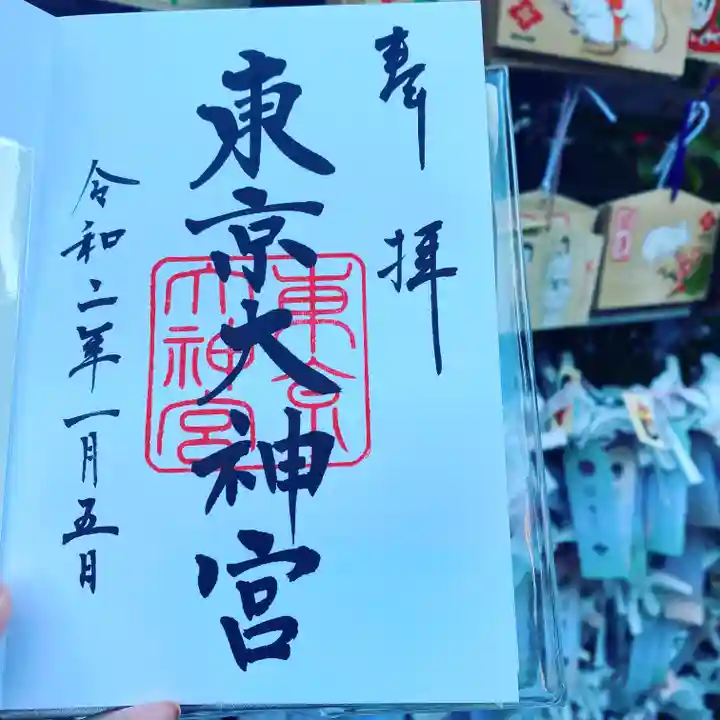 奉拝
東京大神宮
東京
大神宮
令和二年一月五日